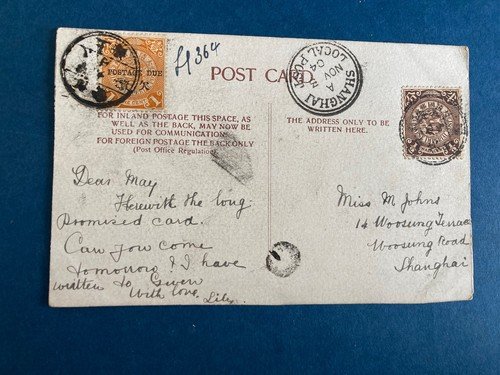 POSTAGE DUE
1
£1364
POST CARD.
SHANGHAI
LOCAL POST
A
NOV
04
FOR INLAND POSTAGE THIS SPACE, AS
WELL AS THE BACK, MAY NOW BE
USED FOR COMMUNICATION.
FOR FOREIGN POSTAGE THE BACK ONLY
(Post Office Regulation).
THE ADDRESS ONLY TO BE
WRITTEN HERE.
Dear May
Herewith the long
promised card.
Can you come
tomorrow & I have
written to Gwen
With love. Lily.
Miss M Johns
14 Woosung Terrace
Woosung Road
Shanghai